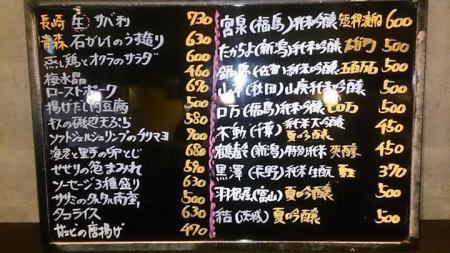 長崎 生 サバ刺 730
青森 石ガレイのうす造り 630
蒸し鶏とオクラのサラダ 600
梅水晶 460
ローストポーク 690
揚げだし肉豆腐 500
キスの磯辺天ぷら 580
ソフトシェルシュリンプのチリマヨ 700
海老と里芋の卵とじ 680
せせりの葱まみれ 570
ソーセージ3種盛り 630
ササミの 500
タコライス 630
甘エビの唐揚げ 470
宮泉(福島)純米吟醸 600
たかちよ(新潟)純米吟醸 雄町 500
鍋島(佐賀)純米吟醸 五百万石 500
山本(秋田)山廃純米吟醸 500
ロ万(福島)純米吟醸 500
不動(千葉)夏吟醸 450
鶴齢(新潟)特別純米 爽醇 450
黒澤(長野)純米生酛 370
羽根屋(富山)夏吟醸 500
結(茨城)夏吟醸 500